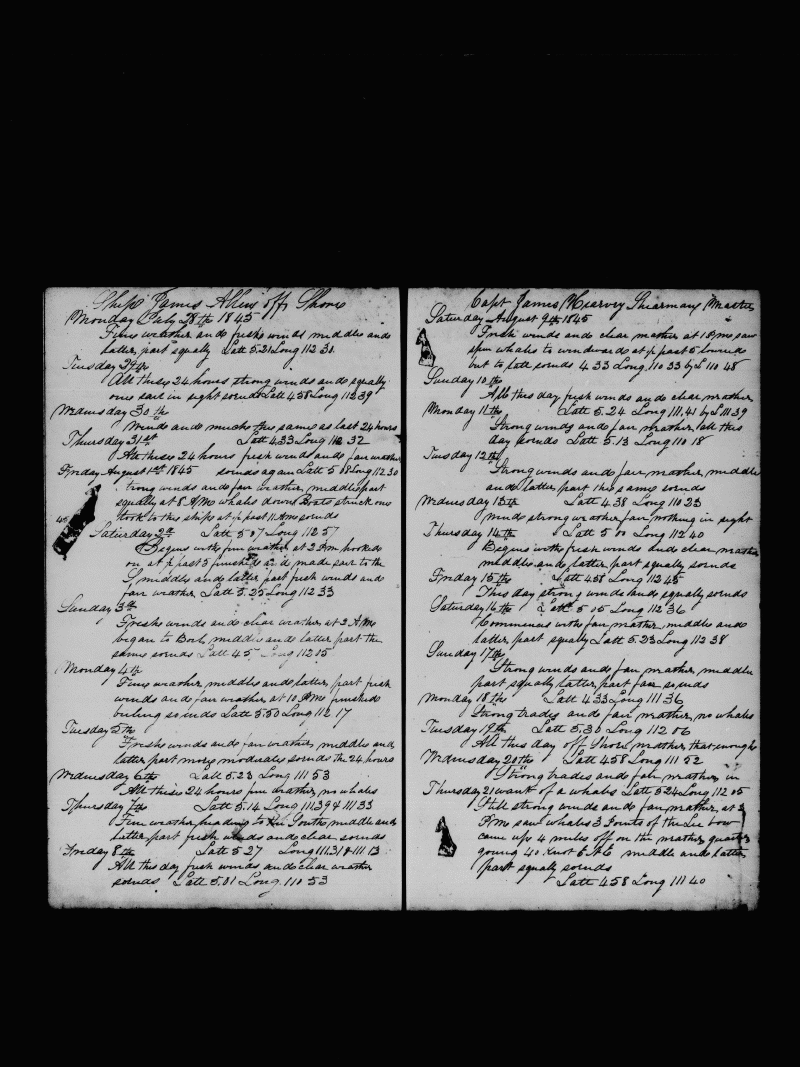 Ship James Allen off Shore
Monday July 28th 1845
Fine weather and fresh winds middle and
latter part squally Latt 5.21 Long 112 30
Tuesday 29th
All these 24 hours strong winds and squally
one sail in sight so ends Latt 4 58 Long 112 39
Wednesday 30th
Winds and much the same as last 24 hours
Thursday 31st Latt 4.33 Long 112 32
All these 24 hours fresh winds and fair weather
Friday August 1st 1845 so ends again Latt 5 18 Long 112 30
trong winds and fair weather middle part
squally at 8 AM whales down Boats struck one
took to the ship at ½ past 11 AM so ends
40
Saturday 2d Latt 5 07 Long 112 57
Begins with fine weather at 2 PM hooked
on at ½ past 5 finished and made sail to the
S middle and latter part fresh winds and
fair weather Latt 5.25 Long 112 33
Sunday 3d
Fresh winds and clear weather at 2 AM
began to Boil middle and latter part the
same so ends Latt 45 Long 112 15
Monday 4th
Fine weather middle and latter part fresh
winds and fair weather at 10 AM finished
boiling so ends Latt 5.50 Long 112 17
Tuesday 5th
Fresh winds and fair weather middle and
latter part more moderate so ends the 24 hours
Wednesday 6th Latt 5.23 Long 111 53
All these 24 hours fine weather no whales
Thursday 7th Latt 5.14 Long 111 39 & 111 33
Fine weather heading to the South middle and
latter part fresh winds and clear so ends
Friday 8th Latt 5 27 Long 111.31 & 111 13
All this day fresh winds and clear weather
so ends Latt 5.01 Long 110 53
Capt James Harvey Shearman Master
Saturday August 9th 1845
Fresh winds and clear weather at 1 PM saw
spm whales to windward at ½ past 5 lowered
but to late so ends 4 33 Long 110 33 by L 110 48
Sunday 10th
All this day fresh winds and clear weather
Monday 11th Latt 5.24 Long 111.41 by L 111 39
Strong winds and fair weather all this
day so ends Latt 5.13 Long 110 18
Tuesday 12th
Strong winds and fair weather middle
and latter part the same so ends
Wednesday 13th Latt 4.38 Long 110 23
Wind strong weather fair nothing in sight
Thursday 14th Latt 5 00 Long 112 40
Begins with fresh winds and clear weather
middle and latter part squally so ends
Friday 15th Latt 458 Long 112 45
This day strong winds and squally so ends
Saturday 16th Latt 5 05 Long 112 36
Commences with fair weather middle and
latter part squally Latt 5.23 Long 112 38
Sunday 17th
Strong winds and fair weather middle
part squally latter part fair so ends
Monday 18th Latt 4 33 Long 111 36
Strong trades and fair weather no whales
Tuesday 19th Latt 5.30 Long 112 06
All this day off Shore weather that enough
Wednesday 20th Latt 458 Long 111 52
Strong trades and fair weather in
Thursday 21 want of a whale Latt 5 24 Long 112 05
Still strong winds and fair weather at 2
PM saw whales 3 Points of the Lee bow
came up 4 miles off on the weather quarter
going 40 Knot ENE middle and latter
part squally so ends
Latt 4 58 Long 111 40